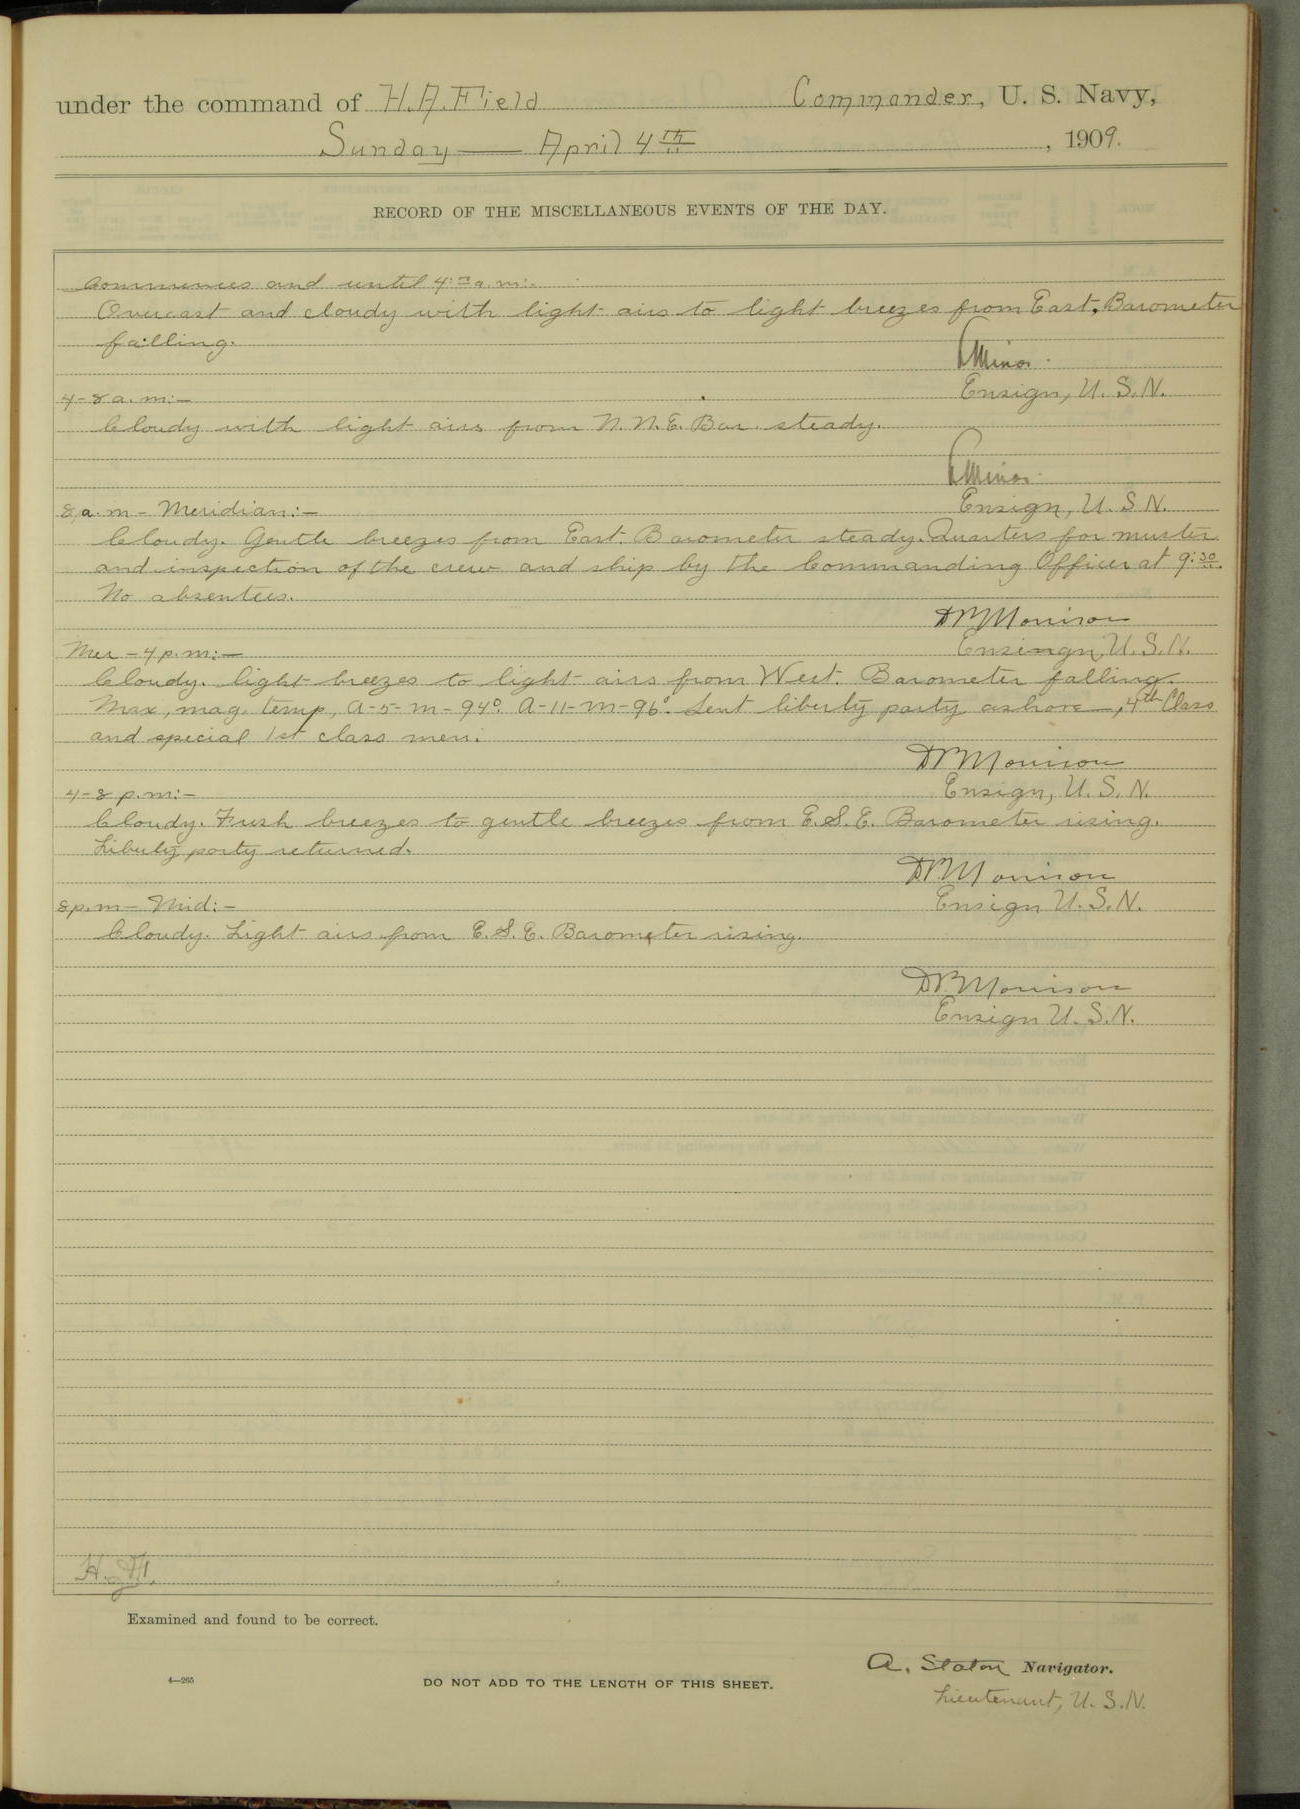 under the command of H. A. Field Commander, U. S. Navy,
Sunday — April 4th, 1909.
RECORD OF THE MISCELLANEOUS EVENTS OF THE DAY.
Commences and until 4:00 a.m:-
Overcast and cloudy with light airs to light breezes from East, Barometer
falling.
Minor
4-8 a.m:-
Ensign, U. S. N.
Cloudy with light airs from N. N. E. Bar. steady.
Minor
8 a.m - Meridian:-
Ensign, U. S N.
Cloudy. Gentle breezes from East. Barometer steady. Quarters for muster
and inspection of the crew and ship by the Commanding Officer at 9:30.
No absentees.
Morrison
Mer - 4 p.m:-
Ensingn, U. S. N.
Cloudy. light breezes to light airs from West. Barometer falling.
Max, mag. temp, A-5-M-94°. A-11-M-96°. Sent liberty party ashore —, 4th Class
and special 1st class men.
Morrison
4-8 p.m:-
Ensign, U. S. N.
Cloudy. Fresh breezes to gentle breezes from E. S. E. Barometer rising.
Liberty party returned.
Morrison
8 p.m - Mid:-
Ensign U. S. N.
Cloudy. Light airs from E. S. E. Barometer rising.
Morrison
Ensign U. S. N.
Examined and found to be correct.
A. Staton Navigator.
4—265
DO NOT ADD TO THE LENGTH OF THIS SHEET.
Lieutenant, U. S. N.